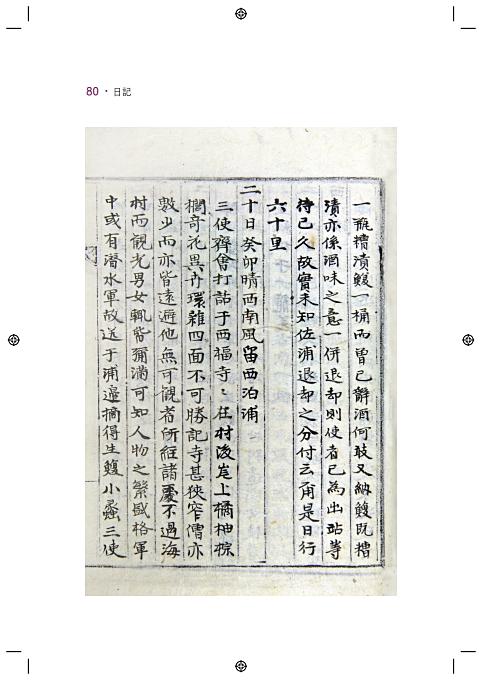 80 · 日記
一瓶糟漬鰒一桶而曾已辭酒何敢又納鰒旣糟
漬亦係酒味之意一倂退却則使者已爲出站等
待已久故實未知佐浦退却之分付云甭是日行
六十里
二十日癸卯晴西南風留西泊浦
三使齊會打話于西福寺〻在村後岸上橘柚棕
櫚奇花異卉環雜四面不可勝記寺甚狹窄僧亦
數少而亦皆遠避他無可觀者所經諸處不過海
村而觀光男女輒皆彌滿可知人物之繁盛格軍
中或有潛水軍故送于浦邊摘得生鰒小螽三使